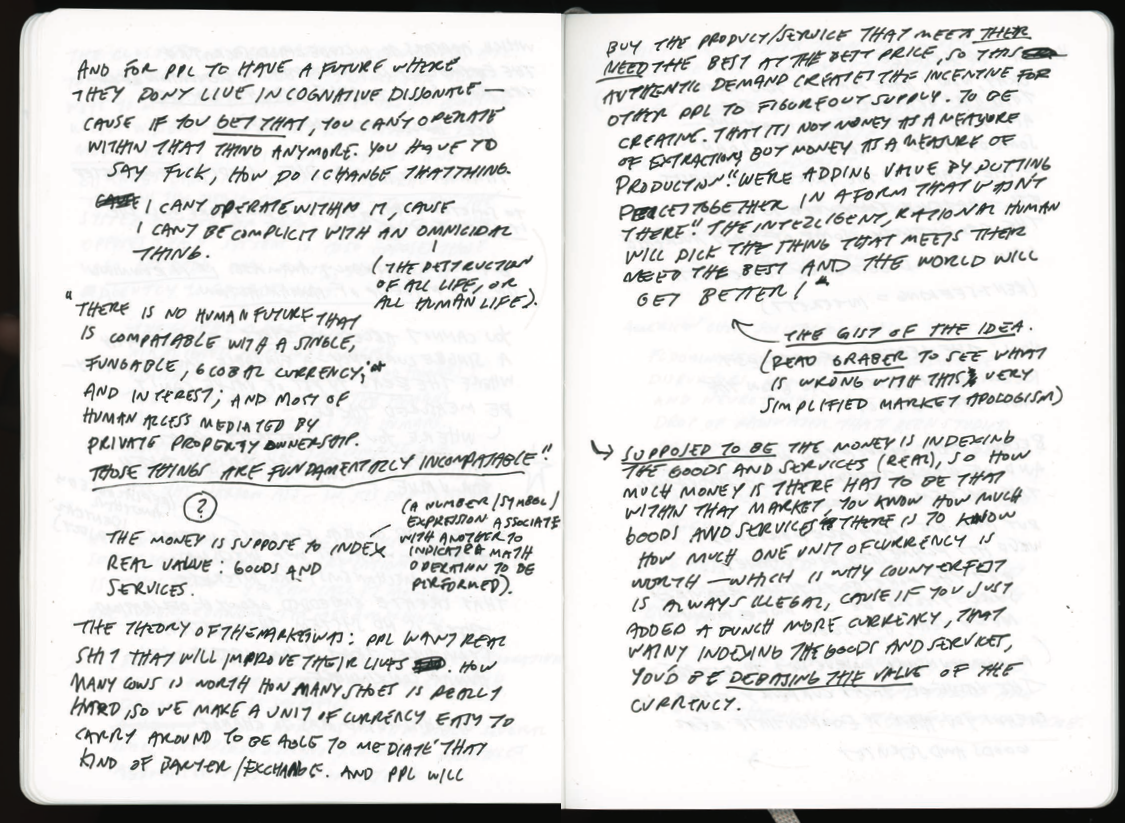 AND FOR PPL TO HAVE A FUTURE WHERE
THEY DON'T LIVE IN COGNATIVE DISSONATE—
CAUSE IF YOU GET THAT, YOU CAN'T OPERATE
WITHIN THAT THING ANYMORE. YOU HAVE TO
SAY FUCK, HOW DO I CHANGE THAT THING.
I CAN'T OPERATE WITHIN IT, CAUSE
I CAN'T BE COMPLICIT WITH AN OMNICIDAL
THING.
(THE DESTRUCTION
OF ALL LIFE, OR
ALL HUMAN LIFE).
"THERE IS NO HUMAN FUTURE THAT
IS COMPATABLE WITH A SINGLE,
FUNGABLE, GLOBAL CURRENCY;
AND INTEREST; AND MOST OF
HUMAN ACCESS MEDIATED BY
PRIVATE PROPERTY OWNERSHIP.
THOSE THINGS ARE FUNDAMENTALLY INCOMPATABLE"
?
THE MONEY IS SUPPOSE TO INDEX
REAL VALUE: GOODS AND
SERVICES.
(A NUMBER/SYMBOL/
EXPRESSION ASSOCIATE
WITH ANOTHER TO
INDICATE A MATH
OPERATION TO BE
PERFORMED).
THE THEORY OF THE MARKET WAS: PPL WANT REAL
SHIT THAT WILL IMPROVE THEIR LIVES. HOW
MANY COWS IS WORTH HOW MANY SHOES IS REALLY
HARD, SO WE MAKE A UNIT OF CURRENCY EASY TO
CARRY AROUND TO BE ABLE TO MEDIATE THAT
KIND OF BARTER/EXCHANGE. AND PPL WILL
BUY THE PRODUCT/SERVICE THAT MEETS THEIR
NEED THE BEST AT THE BEST PRICE, SO THIS
AUTHENTIC DEMAND CREATES THE INCENTIVE FOR
OTHER PPL TO FIGURE OUT SUPPLY. TO BE
CREATIVE. THAT IT'S NOT MONEY AS A MEASURE
OF EXTRACTION, BUT MONEY AS A MEASURE OF
PRODUCTION". WE'RE ADDING VALUE BY PUTTING
PIECES TOGETHER IN A FORM THAT WASN'T
THERE." THE INTELLIGENT, RATIONAL HUMAN
WILL PICK THE THING THAT MEETS THEIR
NEED THE BEST AND THE WORLD WILL
GET BETTER!"
THE GIST OF THE IDEA.
(READ GRABER TO SEE WHAT
IS WRONG WITH THIS VERY
SIMPLIFIED MARKET APOLOGISM)
SUPPOSED TO BE THE MONEY IS INDEXING
THE GOODS AND SERVICES (REAL), SO HOW
MUCH MONEY IS THERE HAS TO BE THAT
WITHIN THAT MARKET YOU KNOW HOW MUCH
GOODS AND SERVICES THERE IS TO KNOW
HOW MUCH ONE UNIT OF CURRENCY IS
WORTH — WHICH IS WHY COUNTERFEIT
IS ALWAYS ILLEGAL, CAUSE IF YOU JUST
ADDED A BUNCH MORE CURRENCY, THAT
WASN'T INDEXING THE GOODS AND SERVICES,
YOU'D BE DEBASING THE VALUE OF THE
CURRENCY.